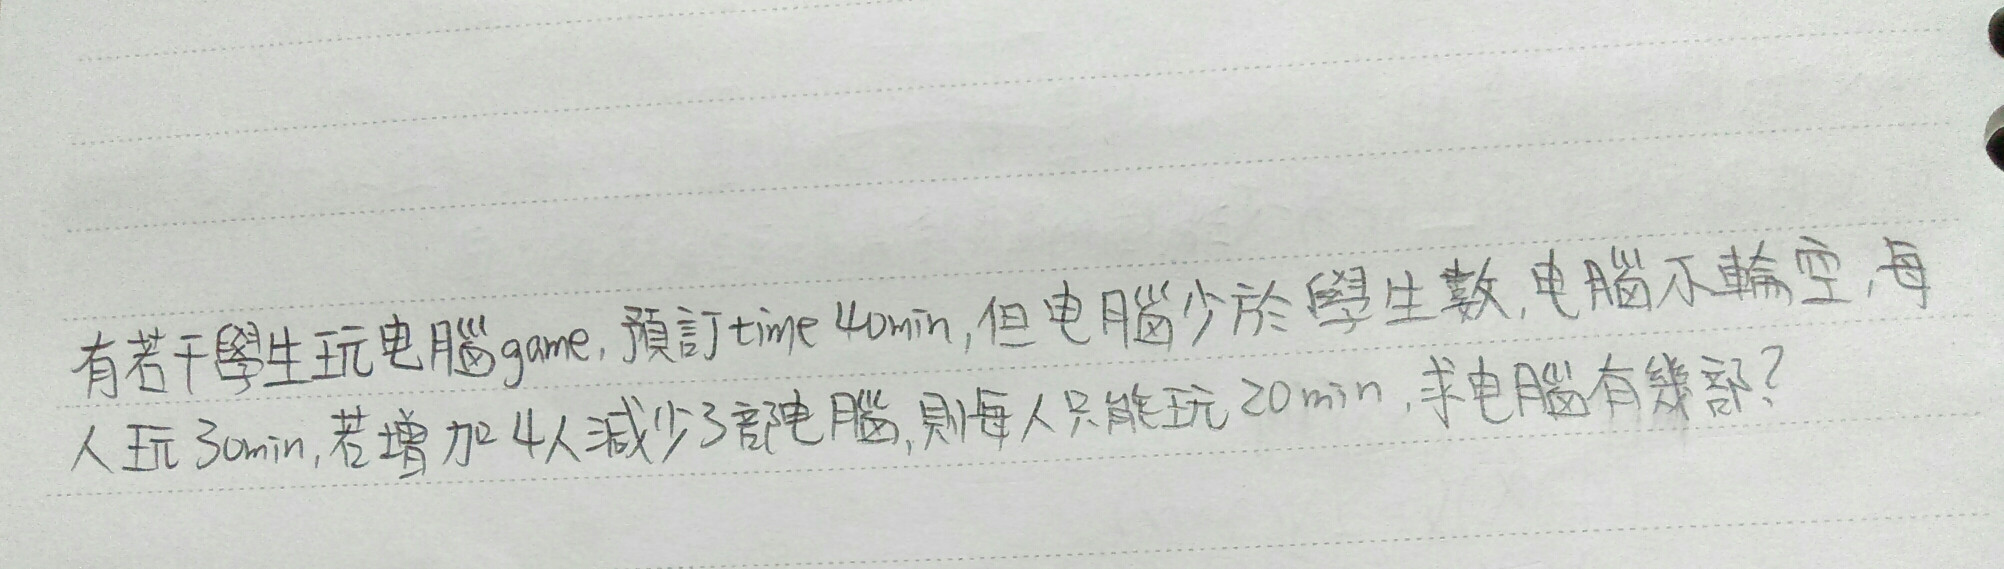 有若干學生玩电腦game,預訂time 40min,但电腦少於學生數,电腦不輪空,每
人玩30min,若增加4人減少3部电腦,則每人只能玩20min,求电腦有幾部?